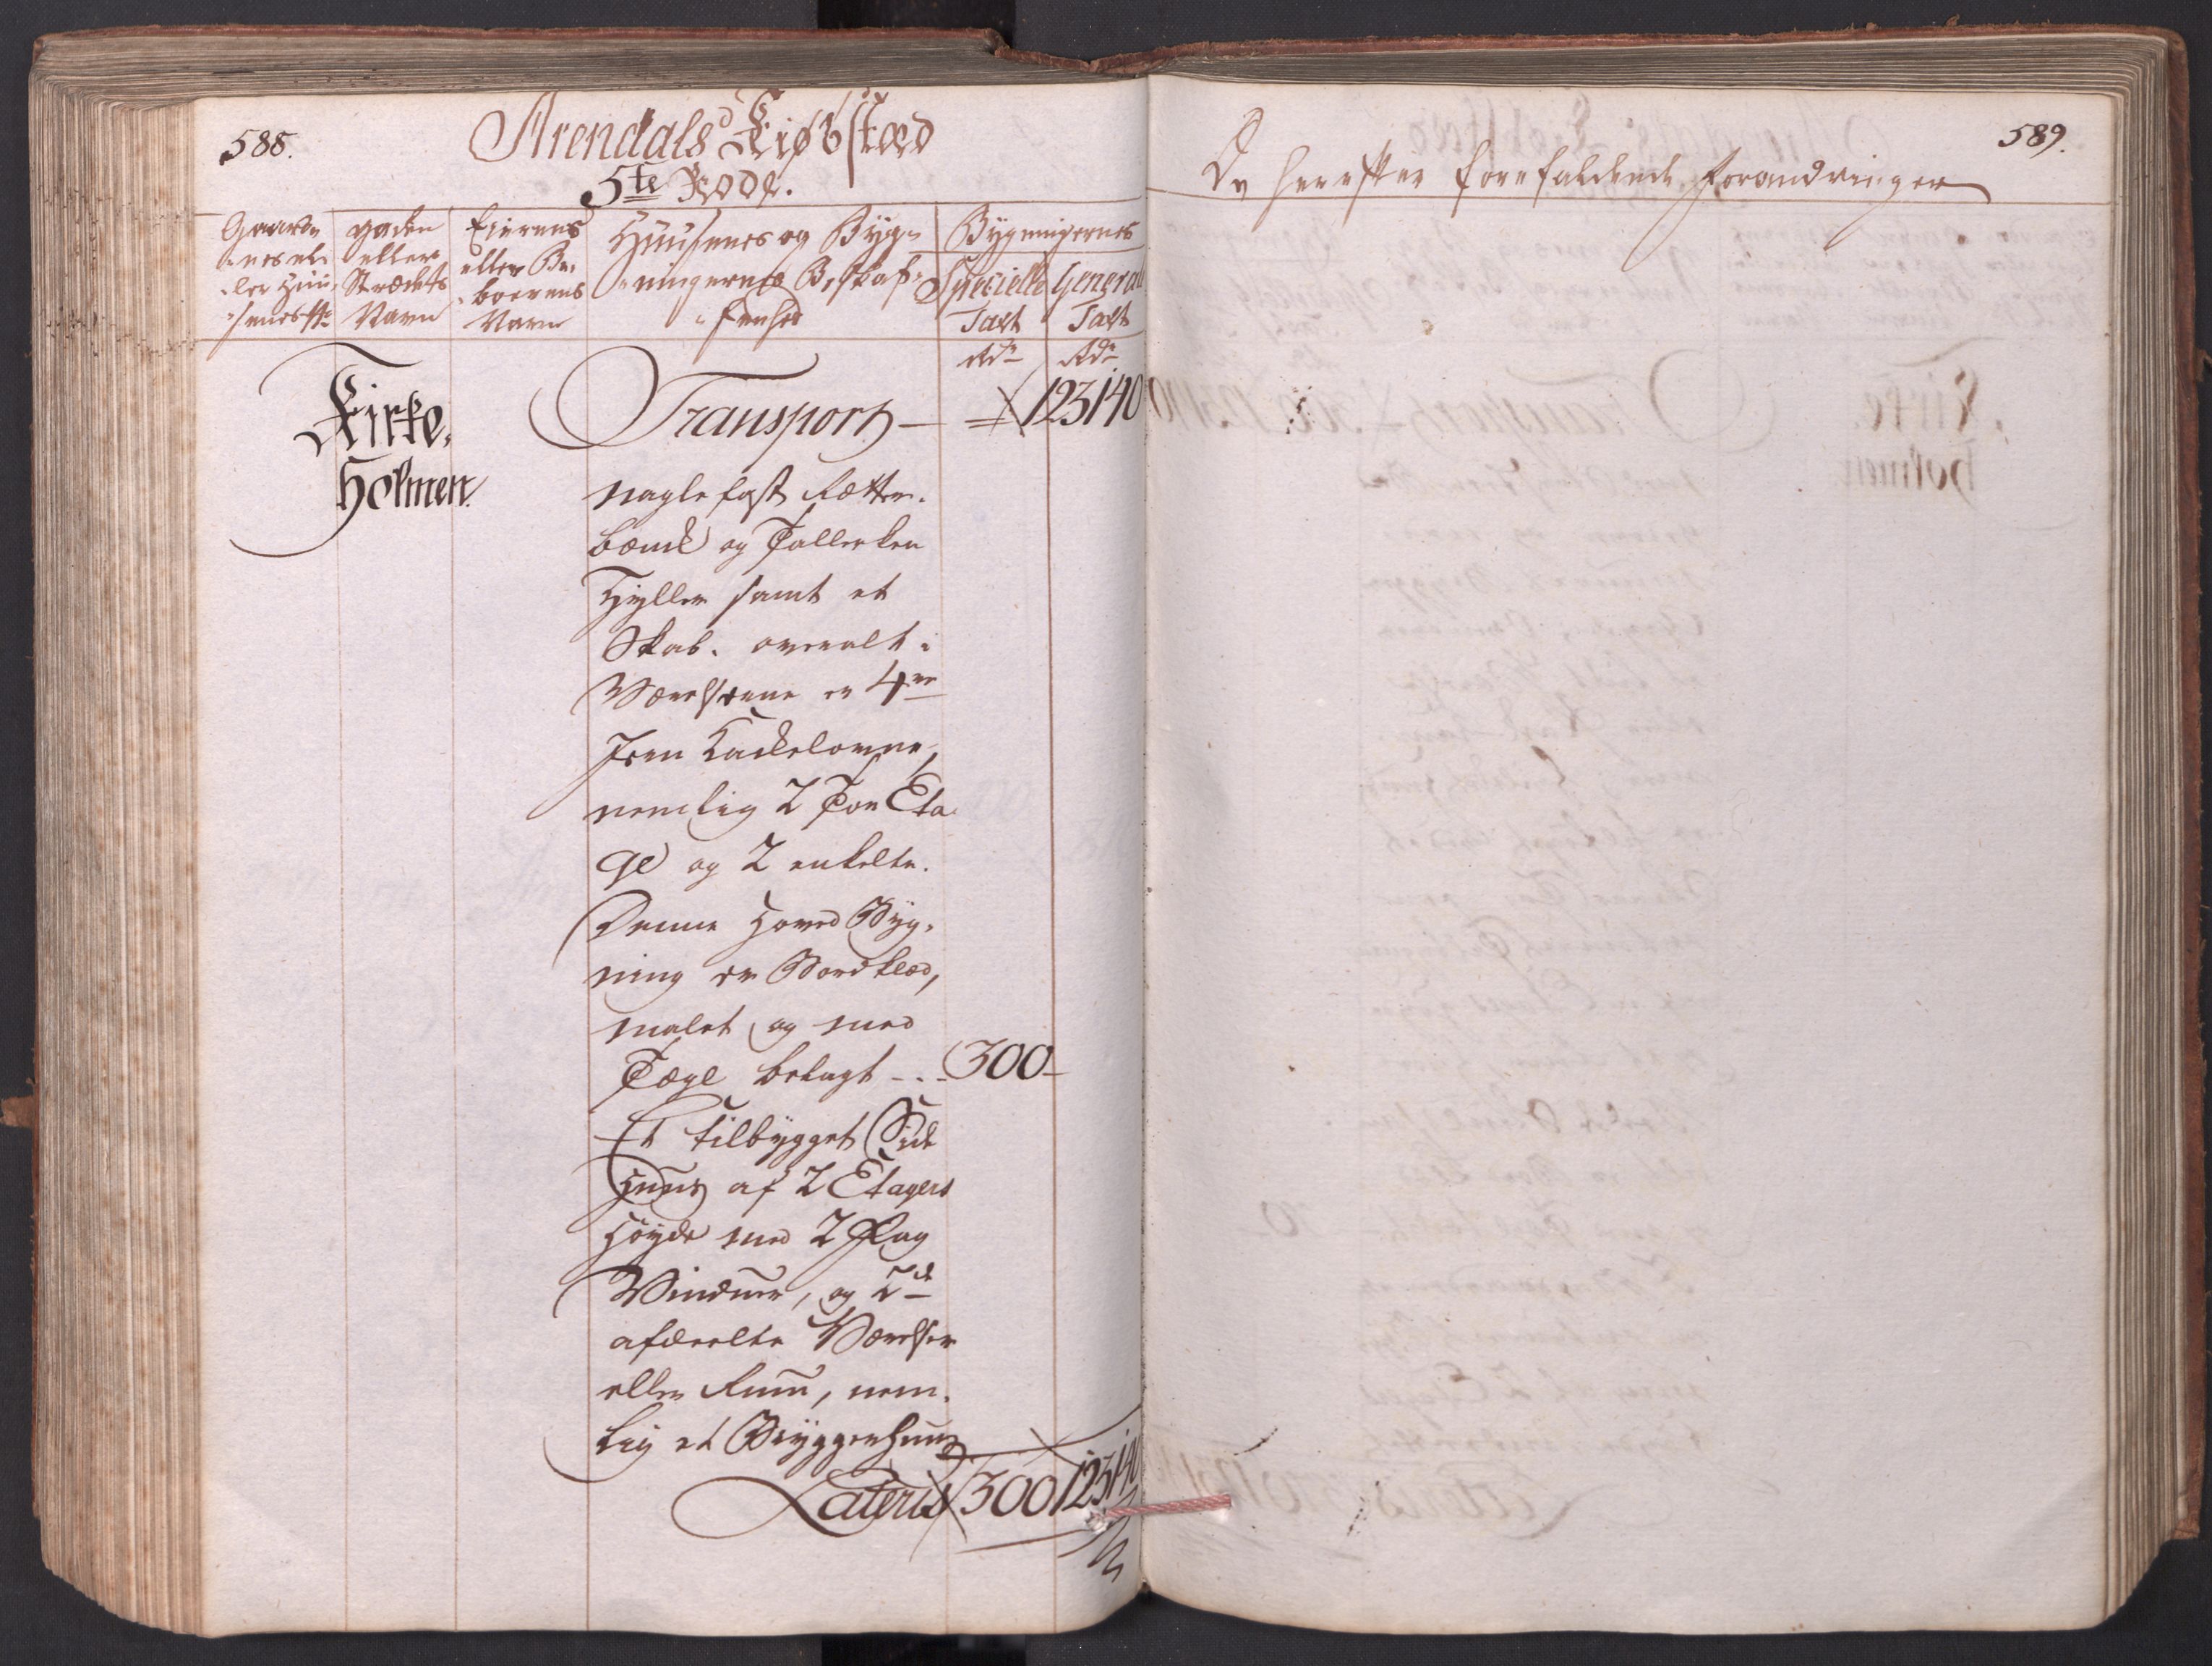 588.
Arendals Kiøbstæd
5te Rode.
Gaarde-
nes el-
ler Huu-
senes No
Gaden
eller
Strædets
Navn
Eierens
eller Be-
boerens
Navn
Huusenes og Byg-
ningernes Beskaf-
fenhed
Bygningernes
Specielle
Taxt
Rdr
General
Taxt
Rdr
Kirke-
holmen
Transport — = 123140
naglefast Rette-
bænk og Tallerken
Hylder samt et
Skab. overalt i
Værelserne er 4re
Jern Kackelovne,
nemlig 2 Toe Eta-
ge og 2 enkelte.
Denne Hoved Byg-
ning er Bordklæd,
malet og med
Tægl belagt - - - 300-
Et tilbygget Side
Huus af 2 Etagers
Høyde med 2 Fag
Vinduer, og 2de
afdeelte Værelser
eller Rum, nem-
lig et Bryggerhuus
Lateris 300 123140
589.
De herefter forefaldende forandringer